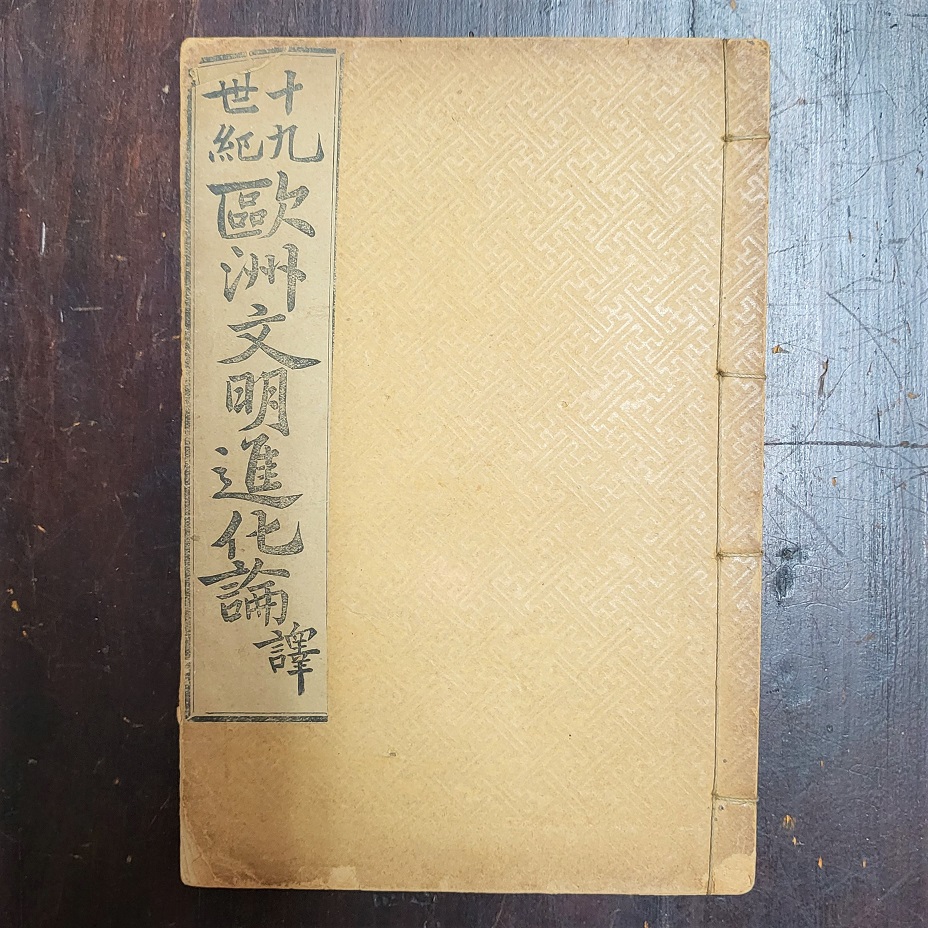 十九
世紀
歐洲文明進化論
譯